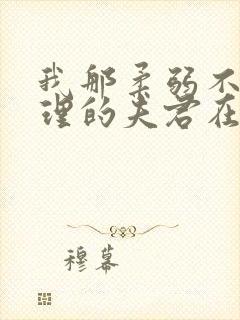 我那柔弱不
理的夫君在
穆幕